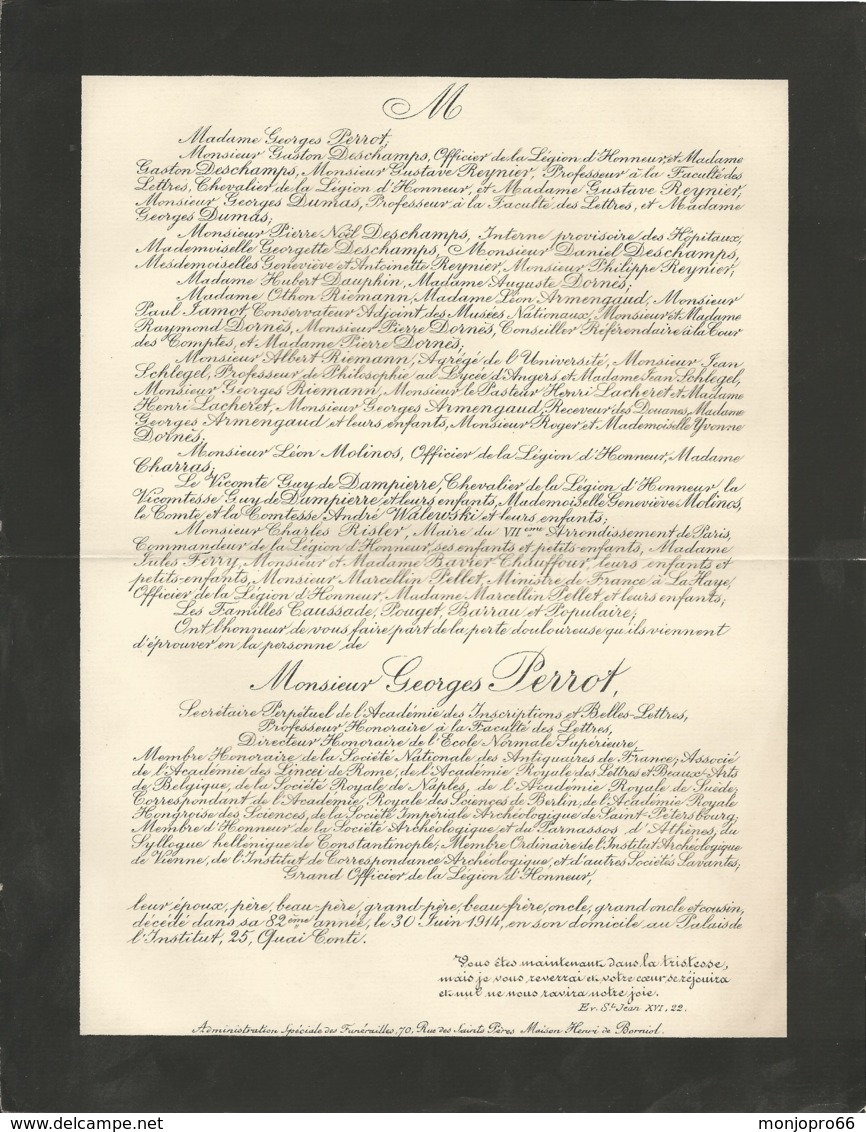 M
Madame Georges Perrot,
Monsieur Gaston Deschamps, Officier de la Légion d'Honneur, et Madame
Gaston Deschamps, Monsieur Gustave Reynier, Professeur à la Faculté des
Lettres, Chevalier de la Légion d'Honneur, et Madame Gustave Reynier,
Monsieur Georges Dumas, Professeur à la Faculté des Lettres, et Madame
Georges Dumas;
Monsieur Pierre Noël Deschamps, Interne provisoire des Hôpitaux,
Mademoiselle Georgette Deschamps, Monsieur Daniel Deschamps,
Mesdemoiselles Geneviève et Antoinette Reynier, Monsieur Philippe Reynier;
Madame Hubert Dauphin, Madame Auguste Dornès;
Madame Othon Riemann, Madame Léon Armengaud, Monsieur
Paul Jamot, Conservateur Adjoint des Musées Nationaux, Monsieur et Madame
Raymond Dornès, Monsieur Pierre Dornès, Conseiller Référendaire à la Cour
des Comptes, et Madame Pierre Dornès;
Monsieur Albert Riemann, Agrégé de l'Université, Monsieur Jean
Schlegel, Professeur de Philosophie au Lycée d'Angers, et Madame Jean Schlegel,
Monsieur Georges Riemann, Monsieur le Pasteur Henri Lacheret et Madame
Henri Lacheret, Monsieur Georges Armengaud, Receveur des Douanes, Madame
Georges Armengaud et leurs enfants, Monsieur Roger et Mademoiselle Yvonne
Dornès;
Monsieur Léon Molinos, Officier de la Légion d'Honneur, Madame
Charras;
Le Vicomte Guy de Dampierre, Chevalier de la Légion d'Honneur, la
Vicomtesse Guy de Dampierre et leurs enfants, Mademoiselle Geneviève Molinos,
le Comte et la Comtesse André Walewski et leurs enfants;
Monsieur Charles Risler, Maire du VIIème Arrondissement de Paris,
Commandeur de la Légion d'Honneur, ses enfants et petits-enfants, Madame
Jules Ferry, Monsieur et Madame Bavier-Chauffour, leurs enfants et
petits-enfants, Monsieur Marcellin Pellet, Ministre de France à La Haye,
Officier de la Légion d'Honneur, Madame Marcellin Pellet et leurs enfants;
Les Familles Caussade, Pouget, Barrau et Populaire;
Ont l'honneur de vous faire part de la perte douloureuse qu'ils viennent
d'éprouver en la personne de
Monsieur Georges Perrot,
Secrétaire Perpétuel de l'Académie des Inscriptions et Belles-Lettres,
Professeur Honoraire à la Faculté des Lettres,
Directeur Honoraire de l'Ecole Normale Supérieure,
Membre Honoraire de la Société Nationale des Antiquaires de France, Associé
de l'Académie des Lincei de Rome, de l'Académie Royale des Lettres et Beaux-Arts
de Belgique, de la Société Royale de Naples, de l'Académie Royale de Suède,
Correspondant de l'Académie Royale des Sciences de Berlin, de l'Académie Royale
Hongroise des Sciences, de la Société Impériale Archéologique de Saint-Pétersbourg;
Membre d'Honneur de la Société Archéologique et du Parnassos d'Athènes, du
Syllogue hellénique de Constantinople, Membre Ordinaire de l'Institut Archéologique
de Vienne, de l'Institut de Correspondance Archéologique, et d'autres Sociétés Savantes;
Grand Officier de la Légion d'Honneur,
leur époux, père, beau-père, grand-père, beau-frère, oncle, grand oncle et cousin,
décédé dans sa 82ème année, le 30 Juin 1914, en son domicile au Palais de
l'Institut, 25, Quai Conti.
Vous êtes maintenant dans la tristesse,
mais je vous reverrai et votre cœur se réjouira
et nul ne vous ravira votre joie.
Ev. St. Jean XVI, 22.
Administration Spéciale des Funérailles, 70, Rue des Saints Pères Maison Henri de Borniol.
monjopro66
monjopro66